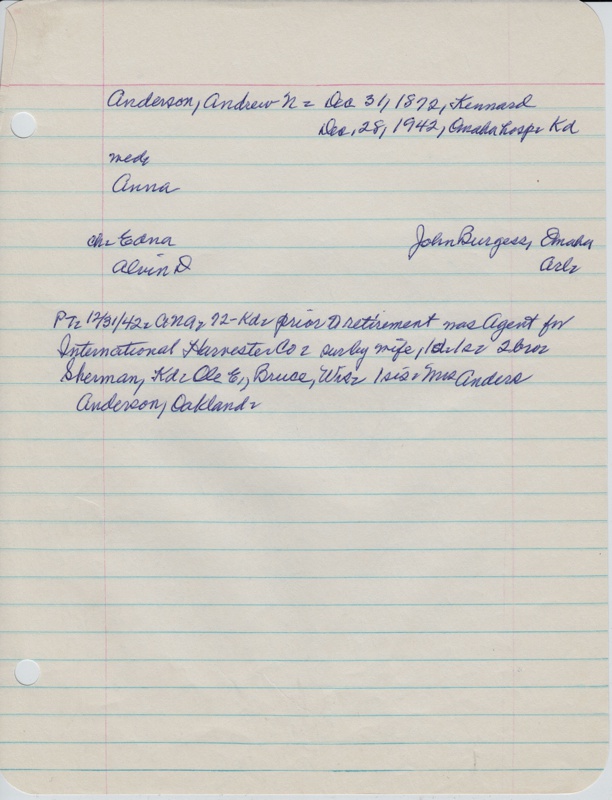 Anderson, Andrew N - Dec 31, 1872, Kennard
Dec, 28, 1942, Omaha hosp - Kd
med,
Anna
ch - Edna John Burgess, Omaha
Alvin D Arl -
PT - 12/31/42 - ANA, 72 - Kd - prior to retirement was Agent for
International Harvester Co - surby wife, 1d, 1s - 2 bros
Sherman, Kd - Ole E., Bruce, Wis - 1 sis - Mrs Anders
Anderson, Oakland -